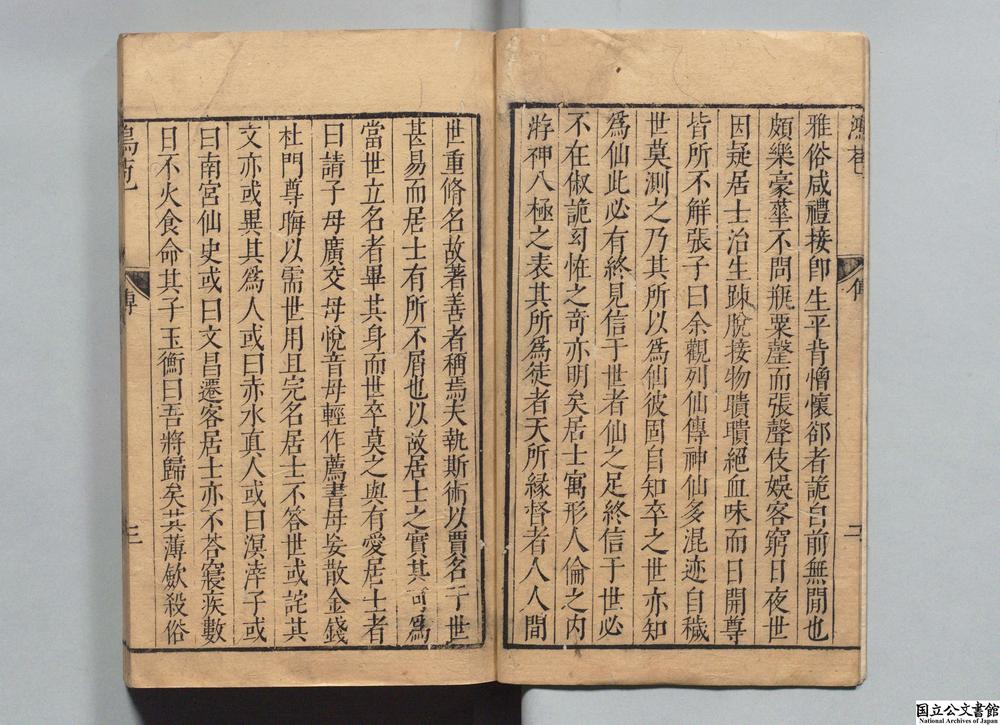 雅俗咸禮接卽生平背憎懷郤者詭
前無閒也
頗樂豪華不問瓶粟罄而張聲伎娛客窮日夜世
因疑居士治生踈脫接物聵聵絕血味而日開尊
皆所不解張子曰余觀列仙傳神仙多混迹自穢
世莫測之乃其所以爲仙彼固自知卒之世亦知
爲仙此必有終見信于世者仙之足終信于世必
不在俶詭幻恠之奇亦明矣居士寓形人倫之內
游神八極之表其所爲徒者天所緣督者人人間
二
世重脩名故著善者稱焉夫執斯術以賈名于世
甚易而居士有所不屑也以故居士之實其可爲
當世立名者畢其身而世卒莫之與有愛居士者
曰請子母廣交母悅音母輕作薦書母妄散金錢
杜門尊晦以需世用且完名居士不答世或詫其
文亦或異其爲人或曰赤水真人或曰溟涬子或
曰南宮仙史或曰文昌遷客居士亦不荅寢疾數
日不火食命其子玉衡曰吾將歸矣其薄歛殺俗
傳
三
国立公文書館
National Archives of Japan